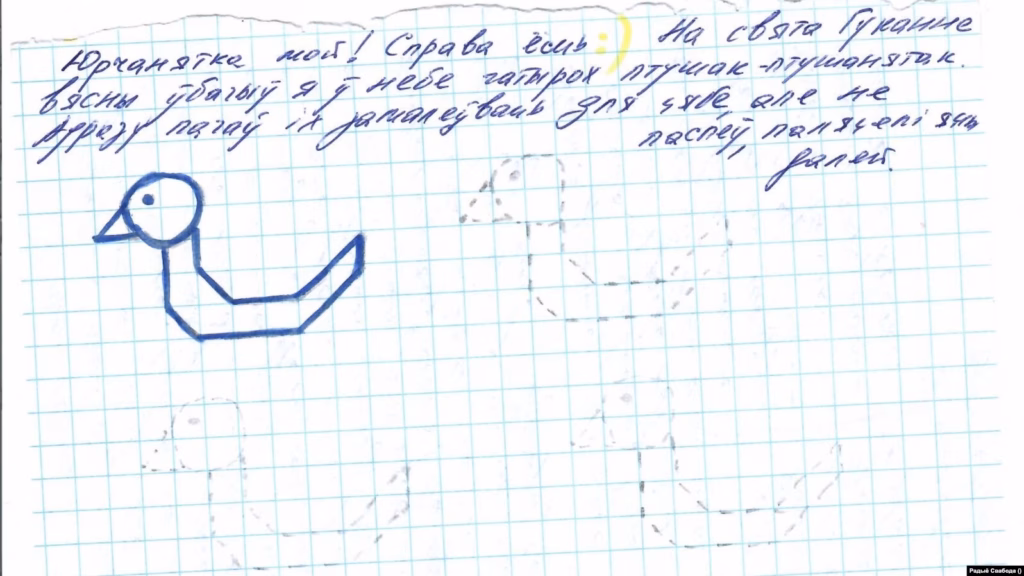 Юрчанятка мой! Справа ёсць :) На свята Гуканне
вясны ўбачыў я ў небе чатырох птушак-птушанятак.
Адразу пачаў іх замалёўваць для цябе, але не
паспеў, паляцелі яны
далей.
Радыё Свабода ()